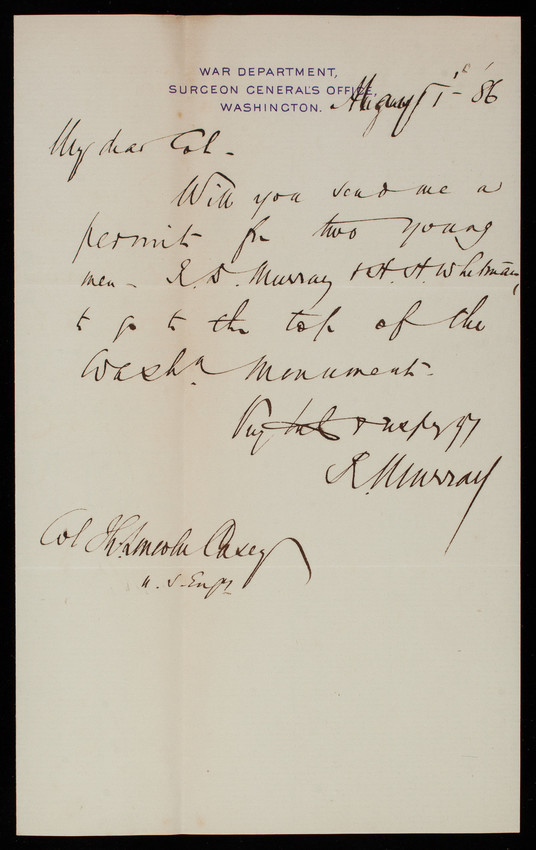 WAR DEPARTMENT,
SURGEON GENERAL'S OFFICE,
WASHINGTON.
August 1st '86
My dear Col -
Will you send me a
permit for two young
men - R. D. Murray & H. H. Whitman,
to go to the top of the
Washn Monument.
Very truly & respy yr
R. Murray
Col Th. Lincoln Casey
U.S. Engr